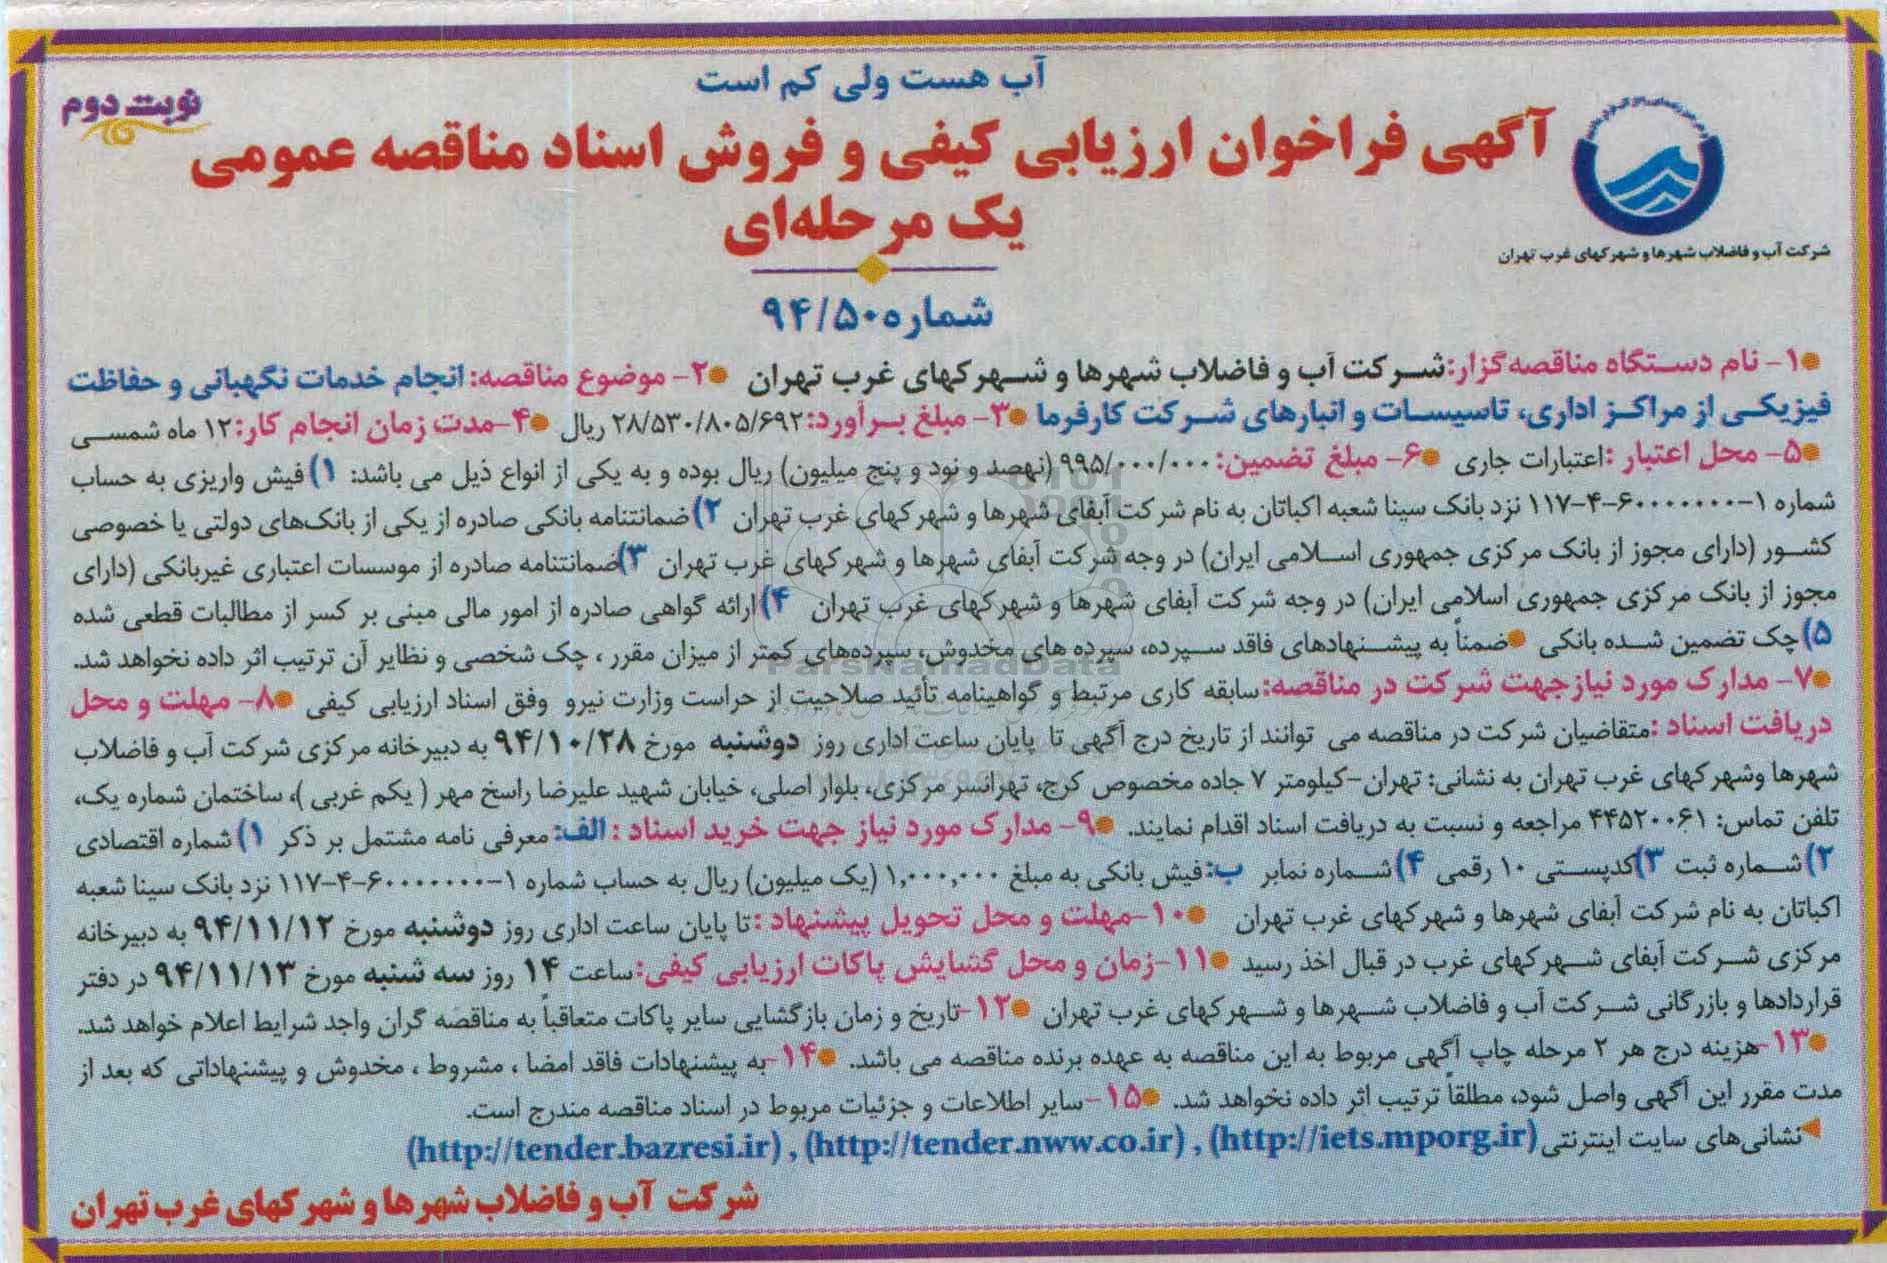 آب هست ولی کم است
نوبت دوم
آگهی فراخوان ارزیابی کیفی و فروش اسناد مناقصه عمومی
یک مرحله‌ای
شرکت آب و فاضلاب شهرها و شهرکهای غرب تهران
شماره ۹۴/۵۰
۱- نام دستگاه مناقصه‌گزار: شرکت آب و فاضلاب شهرها و شهرکهای غرب تهران ۲- موضوع مناقصه: انجام خدمات نگهبانی و حفاظت
فیزیکی از مراکز اداری، تاسیسات و انبارهای شرکت کارفرما ۳- مبلغ برآورد: ۲۸/۵۳۰/۸۰۵/۶۹۲ ریال ۴-مدت زمان انجام کار: ۱۲ ماه شمسی
۵- محل اعتبار : اعتبارات جاری ۶- مبلغ تضمین: ۹۹۵/۰۰۰/۰۰۰ (نهصد و نود و پنج میلیون) ریال بوده و به یکی از انواع ذیل می باشد: ۱) فیش واریزی به حساب
شماره ۱-۶۰۰۰۰۰۰۰-۴-۱۱۷ نزد بانک سینا شعبه اکباتان به نام شرکت آبفای شهرها و شهرکهای غرب تهران ۲) ضمانتنامه بانکی صادره از یکی از بانک‌های دولتی یا خصوصی
کشور (دارای مجوز از بانک مرکزی جمهوری اسلامی ایران) در وجه شرکت آبفای شهرها و شهرکهای غرب تهران ۳) ضمانتنامه صادره از موسسات اعتباری غیربانکی (دارای
مجوز از بانک مرکزی جمهوری اسلامی ایران) در وجه شرکت آبفای شهرها و شهرکهای غرب تهران ۴) ارائه گواهی صادره از امور مالی مبنی بر کسر از مطالبات قطعی شده
۵) چک تضمین شده بانکی ضمناً به پیشنهادهای فاقد سپرده، سپرده های مخدوش، سپرده‌های کمتر از میزان مقرر ، چک شخصی و نظایر آن ترتیب اثر داده نخواهد شد.
۷- مدارک مورد نیاز جهت شرکت در مناقصه: سابقه کاری مرتبط و گواهینامه تأئید صلاحیت از حراست وزارت نیرو وفق اسناد ارزیابی کیفی ۸- مهلت و محل
دریافت اسناد : متقاضیان شرکت در مناقصه می توانند از تاریخ درج آگهی تا پایان ساعت اداری روز دوشنبه مورخ ۹۴/۱۰/۲۸ به دبیرخانه مرکزی شرکت آب و فاضلاب
شهرها وشهرکهای غرب تهران به نشانی: تهران-کیلومتر ۷ جاده مخصوص کرج، تهرانسر مرکزی، بلوار اصلی، خیابان شهید علیرضا راسخ مهر ( یکم غربی )، ساختمان شماره یک،
تلفن تماس: ۴۴۵۲۰۰۶۱ مراجعه و نسبت به دریافت اسناد اقدام نمایند. ۹- مدارک مورد نیاز جهت خرید اسناد : الف: معرفی نامه مشتمل بر ذکر ۱) شماره اقتصادی
۲) شماره ثبت ۳) کدپستی ۱۰ رقمی ۴) شماره نمابر ب: فیش بانکی به مبلغ ۱,۰۰۰,۰۰۰ (یک میلیون) ریال به حساب شماره ۱-۶۰۰۰۰۰۰۰-۴-۱۱۷ نزد بانک سینا شعبه
اکباتان به نام شرکت آبفای شهرها و شهرکهای غرب تهران ۱۰-مهلت و محل تحویل پیشنهاد : تا پایان ساعت اداری روز دوشنبه مورخ ۹۴/۱۱/۱۲ به دبیرخانه
مرکزی شرکت آبفای شهرکهای غرب در قبال اخذ رسید ۱۱-زمان و محل گشایش پاکات ارزیابی کیفی: ساعت ۱۴ روز سه شنبه مورخ ۹۴/۱۱/۱۳ در دفتر
قراردادها و بازرگانی شرکت آب و فاضلاب شهرها و شهرکهای غرب تهران ۱۲-تاریخ و زمان بازگشایی سایر پاکات متعاقباً به مناقصه گران واجد شرایط اعلام خواهد شد.
۱۳-هزینه درج هر ۲ مرحله چاپ آگهی مربوط به این مناقصه به عهده برنده مناقصه می باشد. ۱۴-به پیشنهادات فاقد امضا ، مشروط ، مخدوش و پیشنهاداتی که بعد از
مدت مقرر این آگهی واصل شود، مطلقاً ترتیب اثر داده نخواهد شد. ۱۵-سایر اطلاعات و جزئیات مربوط در اسناد مناقصه مندرج است.
نشانی‌های سایت اینترنتی (http://iets.mporg.ir) , (http://tender.nww.co.ir) , (http://tender.bazresi.ir)
شرکت آب و فاضلاب شهرها و شهرکهای غرب تهران
ParsNamadData